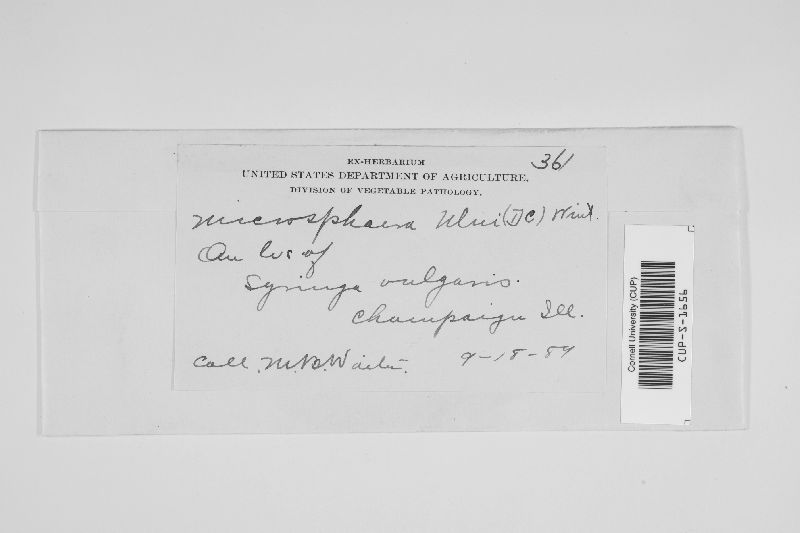 EX-HERBARIUM
361
UNITED STATES DEPARTMENT OF AGRICULTURE,
DIVISION OF VEGETABLE PATHOLOGY.
Microsphaera Alni (DC) Wint.
On lvs of
Syringa vulgaris.
Champaign Ill.
Coll. M.B. Waite. 9-18-89
Cornell University (CUP)
CUP-S-1656